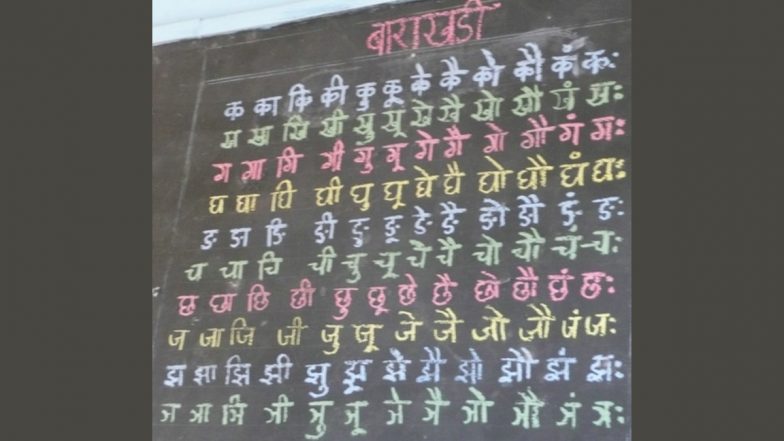 बाराखडी
क का कि की कु कू के कै को कौ कं कः
ख खा खि खी खु खू खे खै खो खौ खं खः
ग गा गि गी गु गू गे गै गो गौ गं गः
घ घा घि घी घु घू घे घै घो घौ घं घः
ङ ङा ङि ङी ङु ङू ङे ङै ङो ङौ ङं ङः
च चा चि ची चु चू चे चै चो चौ चं चः
छ छा छि छी छु छू छे छै छो छौ छं छः
ज जा जि जी जु जू जे जै जो जौ जं जः
झ झा झि झी झु झू झे झै झो झौ झं झः
ञ ञा ञि ञी ञु ञू ञे ञै ञो ञौ ञं ञः